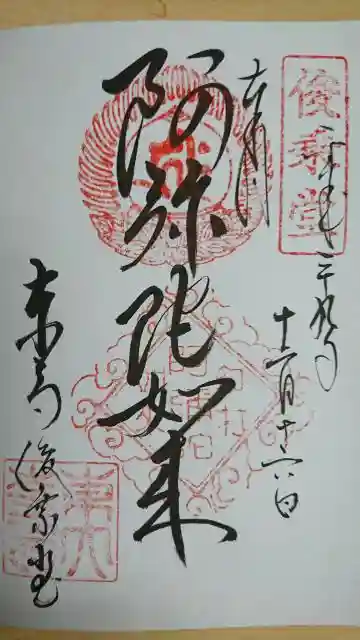 俊乗堂
奉拝
平成二十九年
十二月十六日
阿弥陀如来
東大寺
俊乗堂